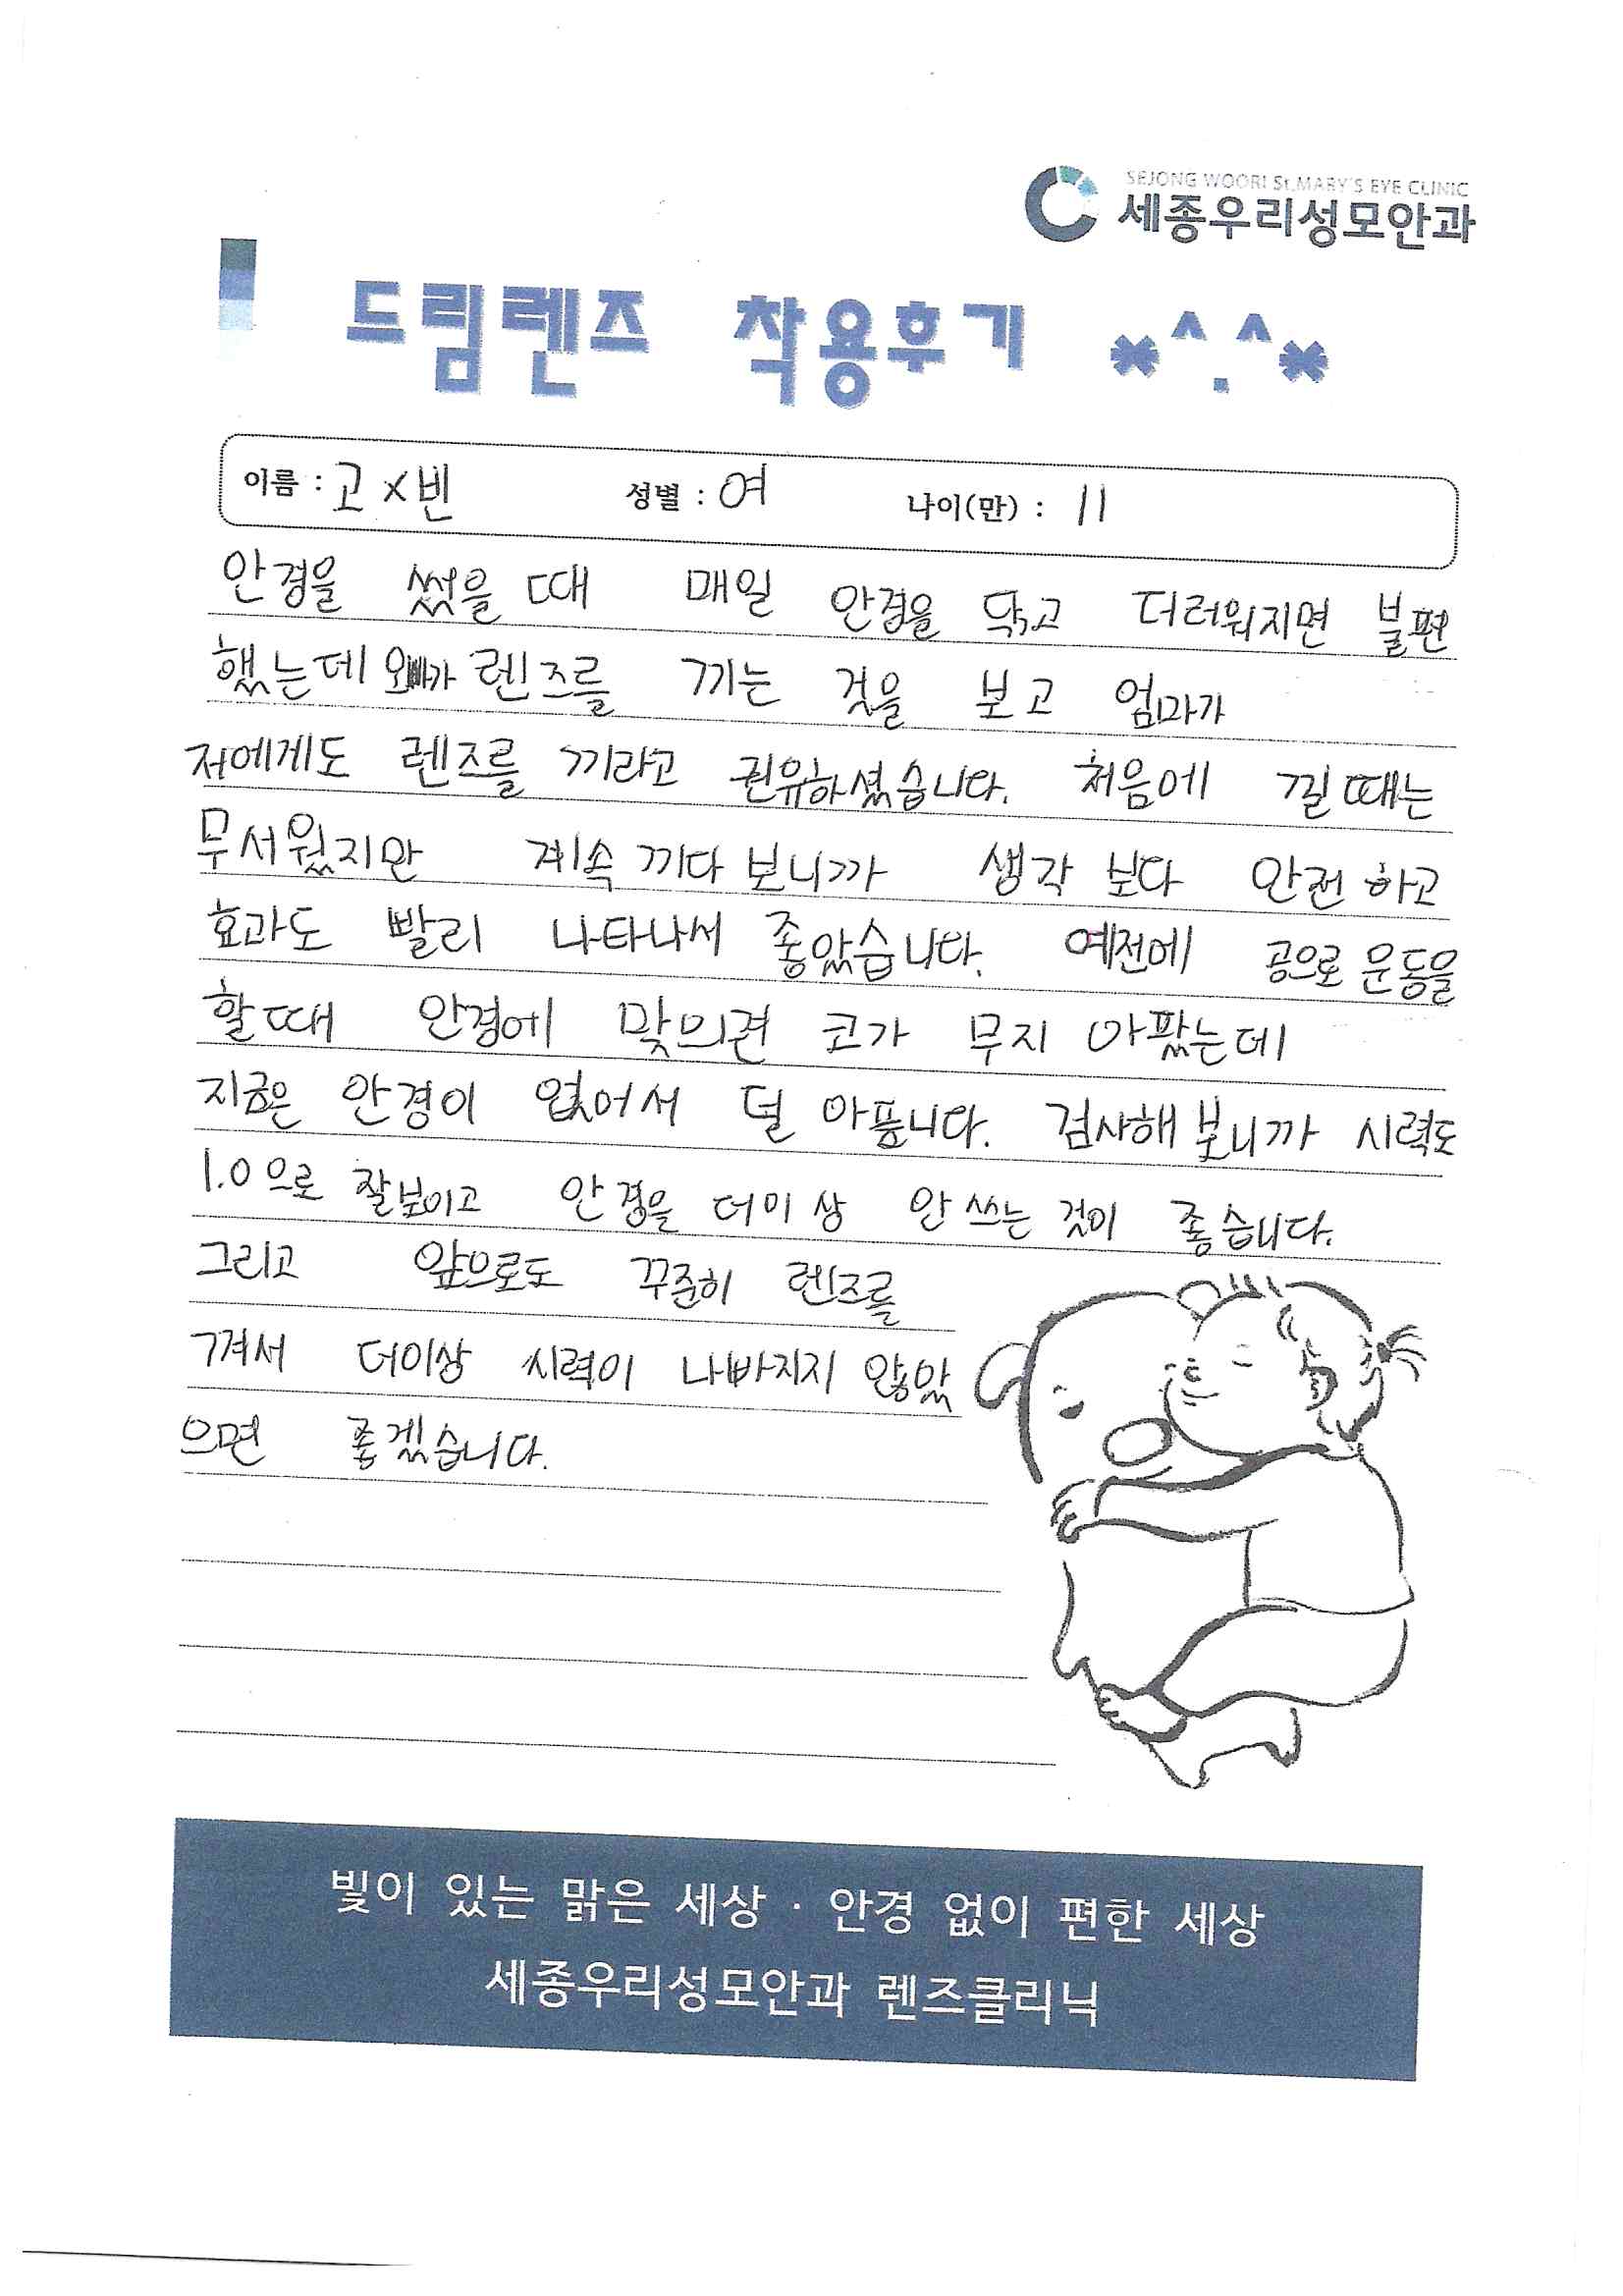 SEJONG WOORI St.MARY'S EYE CLINIC
세종우리성모안과
드림렌즈 착용후기 *^.^*
이름 : 고×빈 성별 : 여 나이(만) : 11
안경을 썼을 때 매일 안경을 닦고 더러워지면 불편
했는데 오빠가 렌즈를 끼는 것을 보고 엄마가
저에게도 렌즈를 끼라고 권유하셨습니다. 처음에 낄 때는
무서웠지만 계속 끼다 보니까 생각 보다 안전 하고
효과도 빨리 나타나서 좋았습니다. 예전에 공으로 운동을
할 때 안경에 맞으면 코가 무지 아팠는데
지금은 안경이 없어서 덜 아픕니다. 검사해 보니까 시력도
1.0으로 잘보이고 안경을 더이상 안 쓰는 것이 좋습니다.
그리고 앞으로도 꾸준히 렌즈를
껴서 더이상 시력이 나빠지지 않았
으면 좋겠습니다.
빛이 있는 맑은 세상 · 안경 없이 편한 세상
세종우리성모안과 렌즈클리닉